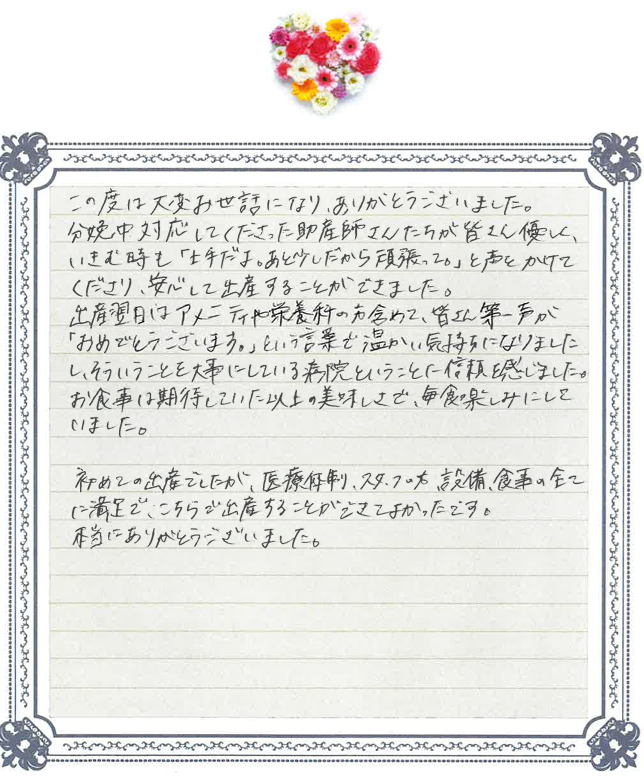 この度は大変お世話になり、ありがとうございました。
分娩中対応してくださった助産師さんたちが皆さん優しく、
いきむ時も「上手だよ。あと少しだから頑張って。」と声をかけて
くださり、安心して出産することができました。
出産翌日はアメニティや栄養科の方含めて、皆さん第一声が
「おめでとうございます。」という言葉で温かい気持ちになりました
し、そういうことを大事にしている病院ということに信頼を感じました。
お食事は期待していた以上の美味しさで、毎食楽しみにして
いました。
初めての出産でしたが、医療体制、スタッフの方、設備、食事の全て
に満足で、こちらで出産することができてよかったです。
本当にありがとうございました。